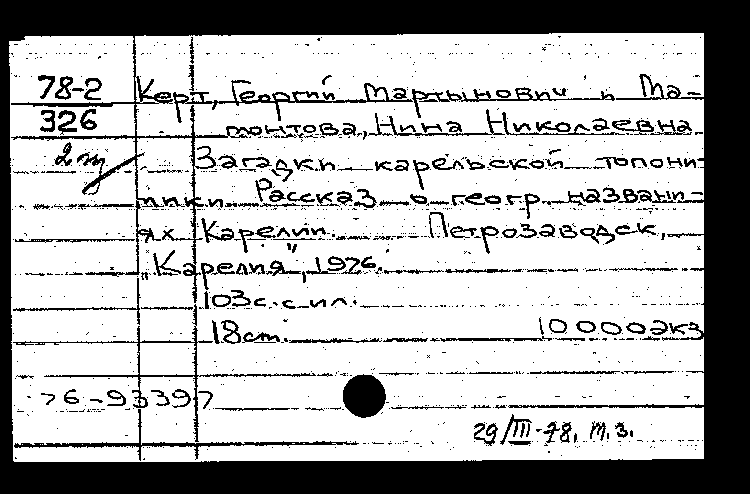 78-2 Керт, Георгий Мартынович и Ма-
326 монтова, Нина Николаевна
2 экз Загадки карельской топони-
мики. Рассказ о геогр. названи-
ях Карелии. Петрозаводск,
"Карелия", 1976.
103с. с ил.
18см. 10000экз
76-93397
29/III-78. т.з.